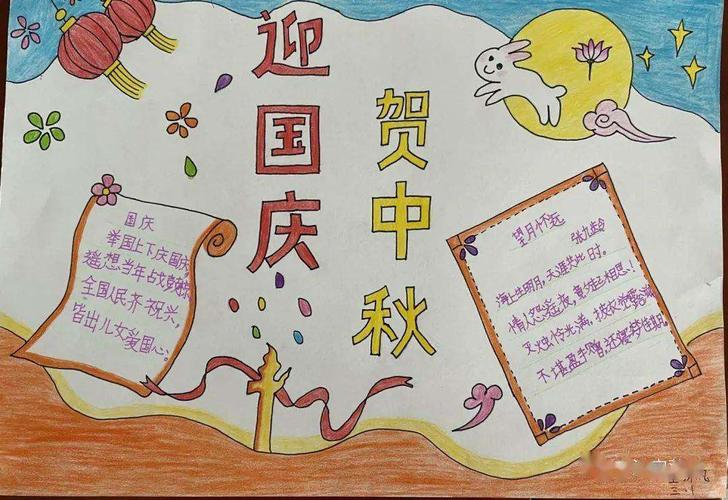 迎国庆
贺中秋
国庆
举国上下庆国庆
遥想当年战
全国人民齐祝兴,
皆出儿女爱国心。
望月怀远
张九龄
海上生明月,天涯共此时。
情人怨遥夜,竟夕起相思!
灭烛怜光满,披衣觉露滋。
不堪盈手赠,还寝梦佳期。